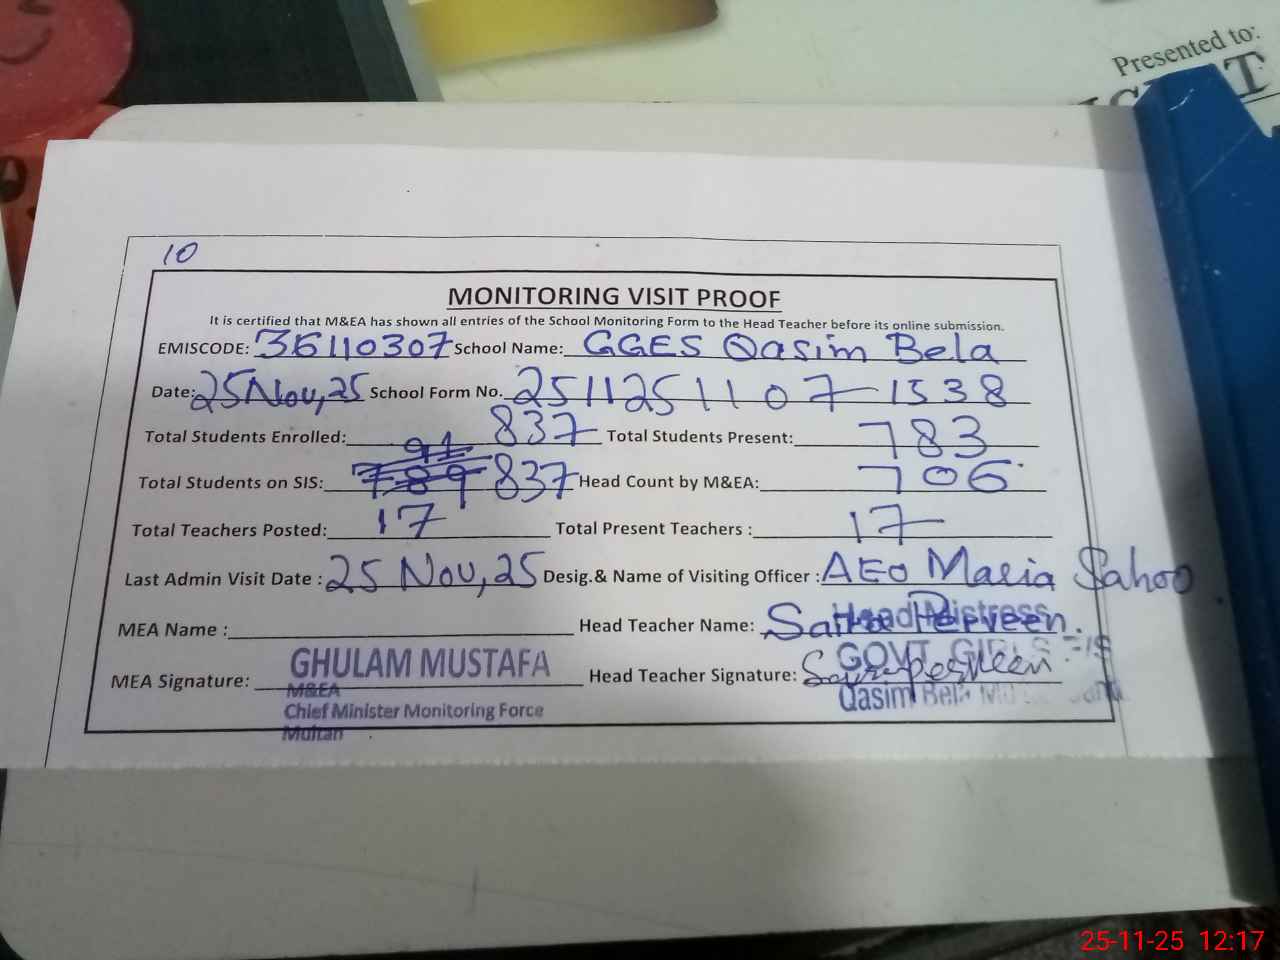 Presented to:
10
MONITORING VISIT PROOF
It is certified that M&EA has shown all entries of the School Monitoring Form to the Head Teacher before its online submission.
EMISCODE: 36110307 School Name: GGES Qasim Bela
Date: 25 Nov, 25 School Form No. 2511251107 1538
Total Students Enrolled: 837 Total Students Present: 783
91
Total Students on SIS: 789 837 Head Count by M&EA: 706
Total Teachers Posted: 17 Total Present Teachers : 17
Last Admin Visit Date : 25 Nov, 25 Desig.& Name of Visiting Officer : AEO Maria Sahoo
MEA Name : Head Teacher Name: Saira Perveen.
Head Mistress
GHULAM MUSTAFA GOVT. GIRLS
MEA Signature: Head Teacher Signature: Saira perveen
M&EA
Chief Minister Monitoring Force Qasim Bela
Multan
25-11-25 12:17